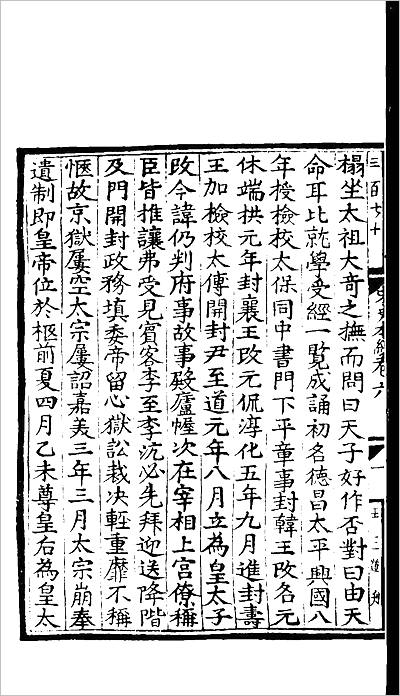 三百七十
宋史本紀卷六
一
榻坐太祖大奇之撫而問曰天子好作否對曰由天
命耳比就學受經一覽成誦初名德昌太平興國八
年授檢校太保同中書門下平章事封韓王改名元
休端拱元年封襄王改元侃淳化五年九月進封壽
王加檢校太傅開封尹至道元年八月立為皇太子
改今諱仍判府事故事殿廬幄次在宰相上宮僚稱
臣皆推讓弗受見賓客李至李沆必先拜迎送降階
及門開封政務填委帝留心獄訟裁决輕重靡不稱
愜故京獄屢空太宗屢詔嘉美三年三月太宗崩奉
遺制即皇帝位於柩前夏四月乙未尊皇后為皇太